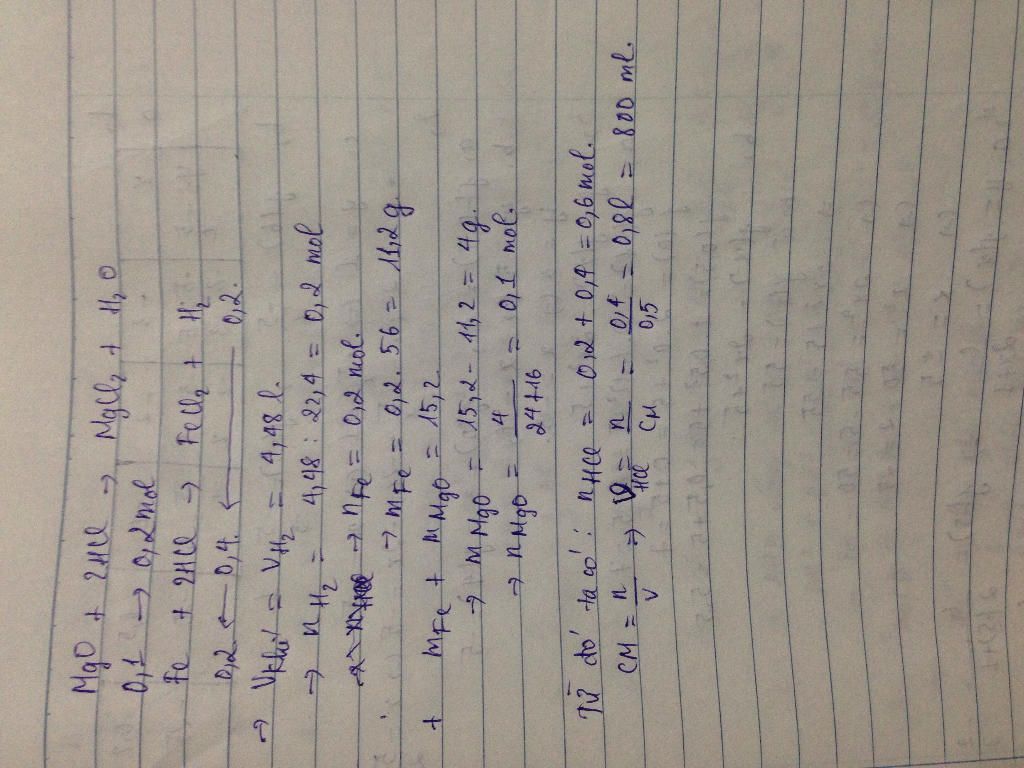 MgO + 2HCl → MgCl₂ + H₂O
0,1 → 0,2 mol
Fe + 2HCl → FeCl₂ + H₂
0,2 ← 0,4 ← 0,2.
→ Vkhí = VH₂ = 4,48 l.
→ nH₂ = 4,48 : 22,4 = 0,2 mol
→ nFe = 0,2 mol.
→ mFe = 0,2 . 56 = 11,2 g
+ mFe + mMgO = 15,2
→ mMgO = 15,2 - 11,2 = 4g.
→ nMgO = 4/24+16 = 0,1 mol.
Từ đó ta có: nHCl = 0,2 + 0,4 = 0,6 mol.
CM = n/V → VHCl = n/CM = 0,4/0,5 = 0,8l = 800 ml.